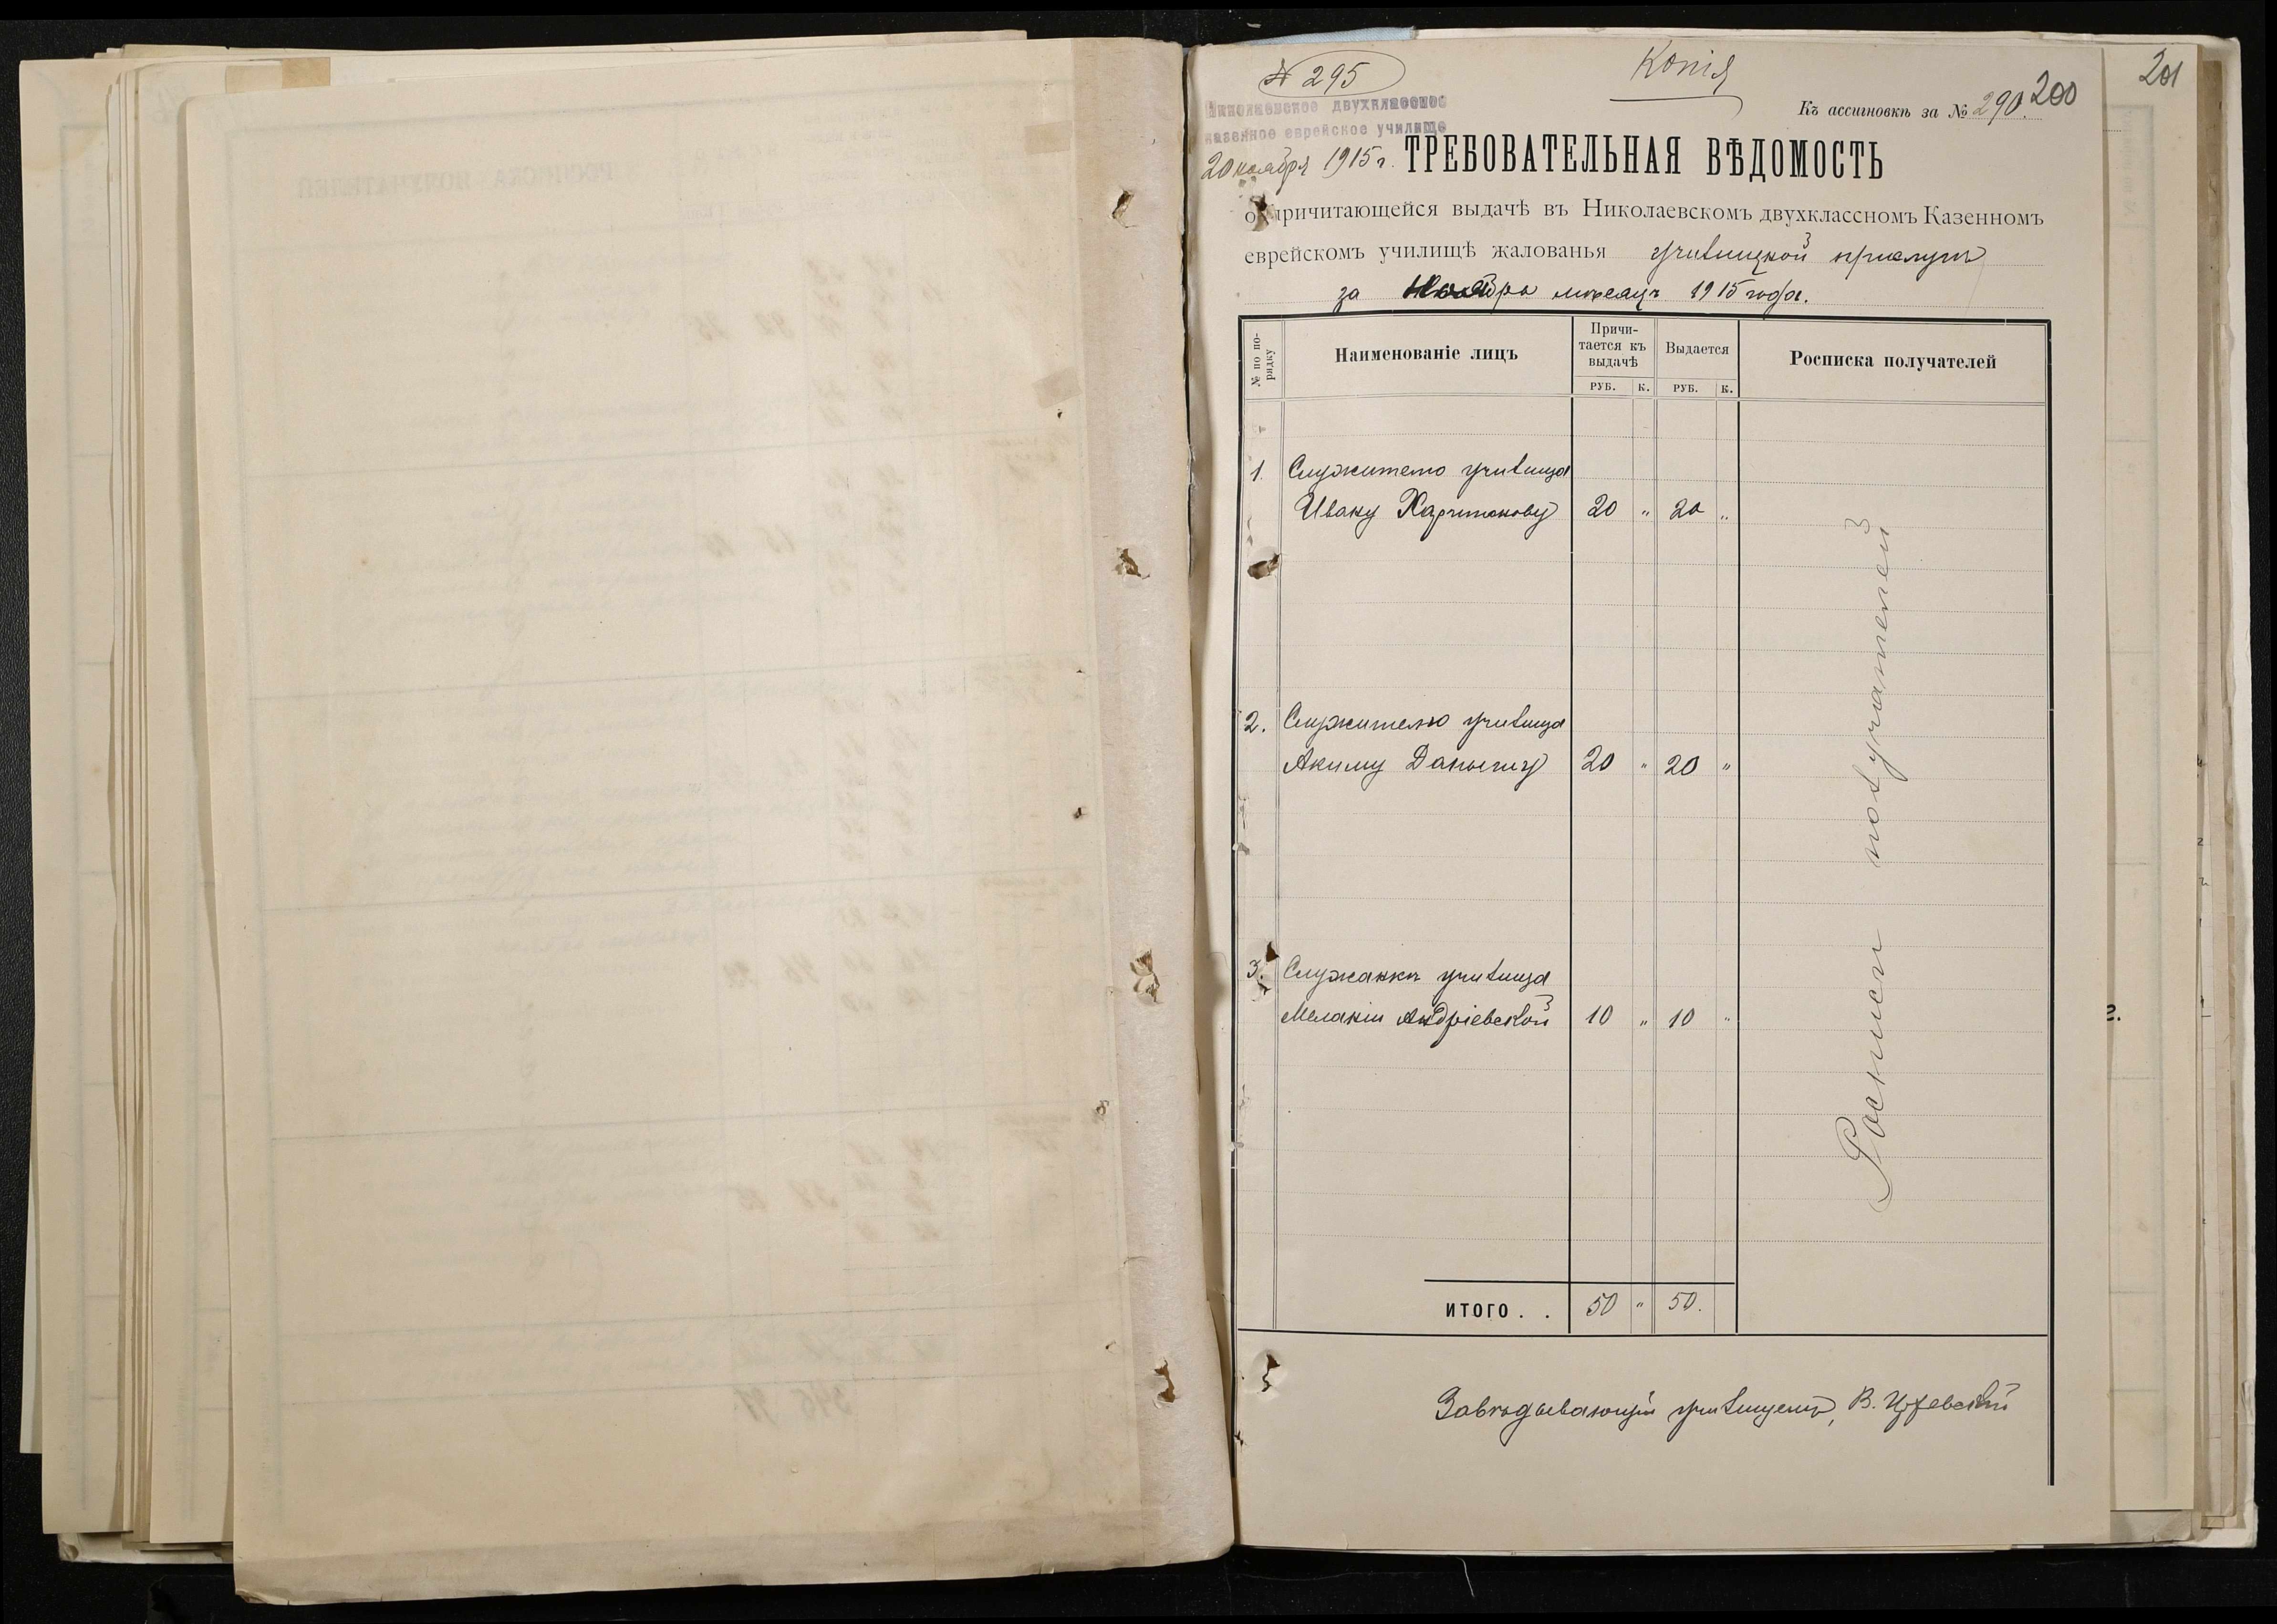 № 295
Копія
200
201
Николаевское двухклассное
казенное еврейское училище
Къ ассигновкѣ за № 290.
20 ноября 1915 г.
ТРЕБОВАТЕЛЬНАЯ ВѢДОМОСТЬ
о причитающейся выдачѣ въ Николаевскомъ двухклассномъ Казенномъ
еврейскомъ училищѣ жалованья училищной прислугѣ
за Ноябрь мѣсяцъ 1915 года.
№ по по-рядку
Наименованіе лицъ
Причи-
тается къ
выдачѣ
Выдается
Росписка получателей
РУБ. К. РУБ. К.
1. Служителю училища
Ивану Харитонову 20 " 20 "
2. Служителю училища
Акиму Даньичу 20 " 20 "
3. Служанкѣ училища
Меланіи Андріевской 10 " 10 "
Росписи получателей
ИТОГО . . 50 " 50.
Завѣдывающій училищемъ, В.